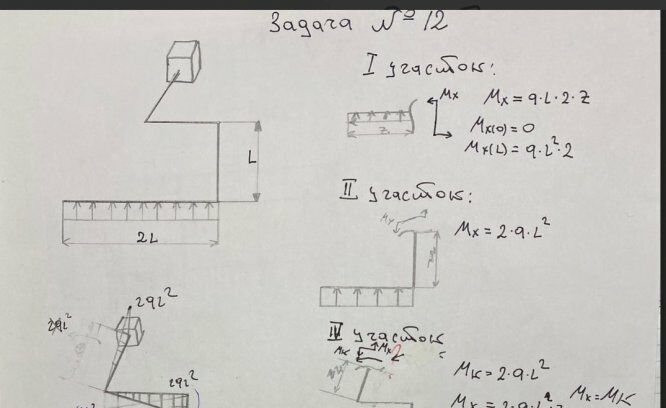 Задача № 12
I участок:
Mx Mx = q·L·2·z
z
Mx(0) = 0
Mx(L) = q·L²·2
L
II участок:
Mx = 2·q·L²
2L
2qL²
III участок
Mк Mx
Mк = 2·q·L²
2qL²
Mx = Mк